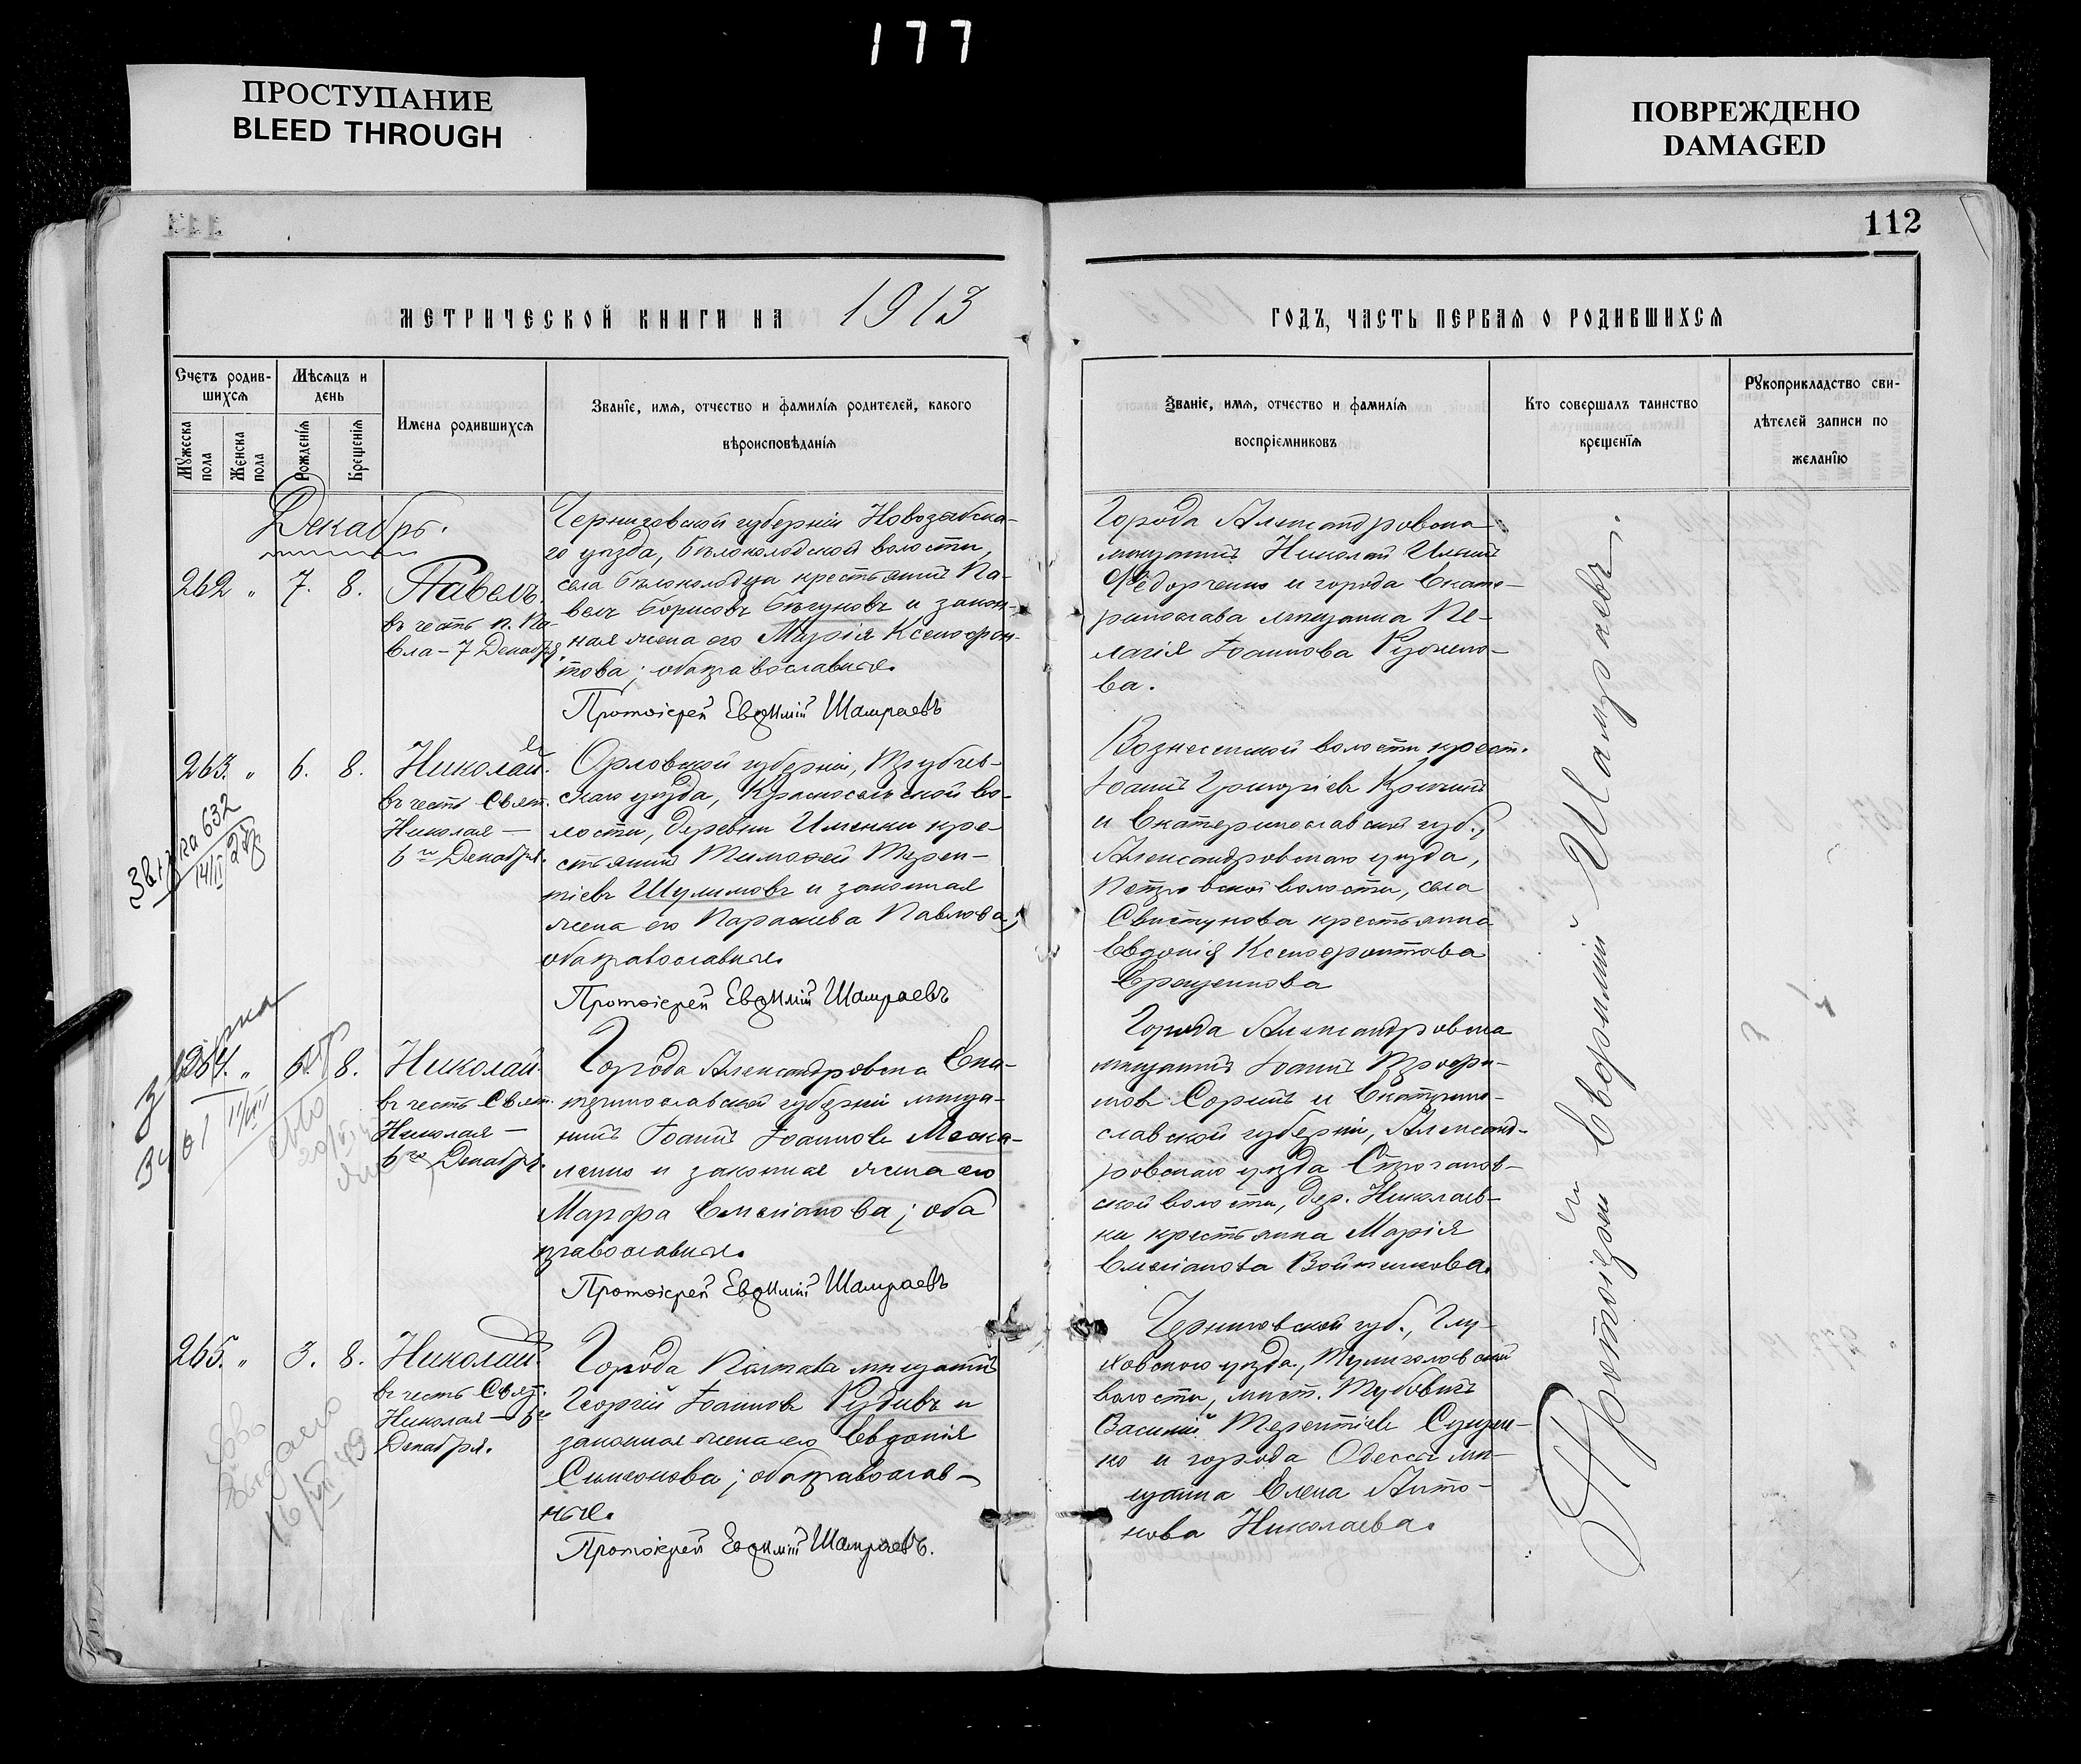 177
ПРОСТУПАНИЕ
BLEED THROUGH
ПОВРЕЖДЕНО
DAMAGED
112
МЕТРИЧЕСКОЙ КНИГИ НА 1913
ГОДЪ, ЧАСТЬ ПЕРВАЯ О РОДИВШИХСЯ
Счетъ родив-
шихся
Мужеска
пола
Женска
пола
Мѣсяцъ и
день
Рожденія
Крещенія
Имена родившихся
Званіе, имя, отчество и фамилія родителей, какого
вѣроисповѣданія
Званіе, имя, отчество и фамилія
воспріемниковъ
Кто совершалъ таинство
крещенія
Рукоприкладство сви-
дѣтелей записи по
желанію
Декабрь.
262 " 7. 8.
Павелъ
въ честь п. Па-
вла - 7 Декабря.
Черниговской губерніи Новозыбска-
го уѣзда, Бѣлоколодской волости,
села Бѣлоколодца крестьянинъ Па-
велъ Борисовъ Бѣгуновъ и закон-
ная жена его Марія Ксенофон-
това; оба православные.
Протоіерей Евфимій Шамраевъ
Города Александровска
мѣщанинъ Николай Ильинъ
Федорченко и города Екате-
ринослава мѣщанка Пе-
лагія Іоаннова Рудоме-
ва.
263. " 6. 8.
Николай.
въ честь Свят.
Николая -
6го Декабря.
Орловской губерніи, Трубчев-
скаго уѣзда, Красносельской во-
лости, деревни Именки кре-
стьянинъ Тимофей Терен-
тіевъ Шулимовъ и законная
жена его Параскева Павлова;
оба православные.
Протоіерей Евфимій Шамраевъ
Вознесенской волости крест.
Іоаннъ Григоріевъ Кринин
и Екатеринославской губ.,
Александровскаго уѣзда,
Петровской волости, села
Свистунова крестьянка
Евдокія Ксенофонтова
Ерещенкова
632
14/II
264. " 6. 8.
Николай.
въ честь Свят.
Николая -
6го Декабря.
Города Александровска Ека-
теринославской губерніи мѣща-
нинъ Іоаннъ Іоанновъ Моска-
ленко и законная жена его
Марфа Емеліанова; оба
православные.
Протоіерей Евфимій Шамраевъ
Города Александровска
мѣщанинъ Іоаннъ Трофи-
мовъ Соринъ и Екатерино-
славской губерніи, Александ-
ровскаго уѣзда Строганов-
ской волости, дер. Николаев-
ки крестьянка Марія
Емеліанова Войтикова.
265. " 3. 8.
Николай.
въ честь Свят.
Николая - 6го
Декабря.
Города мѣщанинъ
Георгій Іоанновъ Рудивъ и
законная жена его Евдокія
Симеонова; оба православ-
ные.
Протоіерей Евфимій Шамраевъ.
Черниговской губ., Глу-
ховскаго уѣзда, Тулиголовской
волости, мѣст.
Василій Терентіевъ Сущен-
ко и города Одессы мѣ-
щанка Елена Анто-
нова Николаева.
Протоіерей Евфимій Шамраевъ.